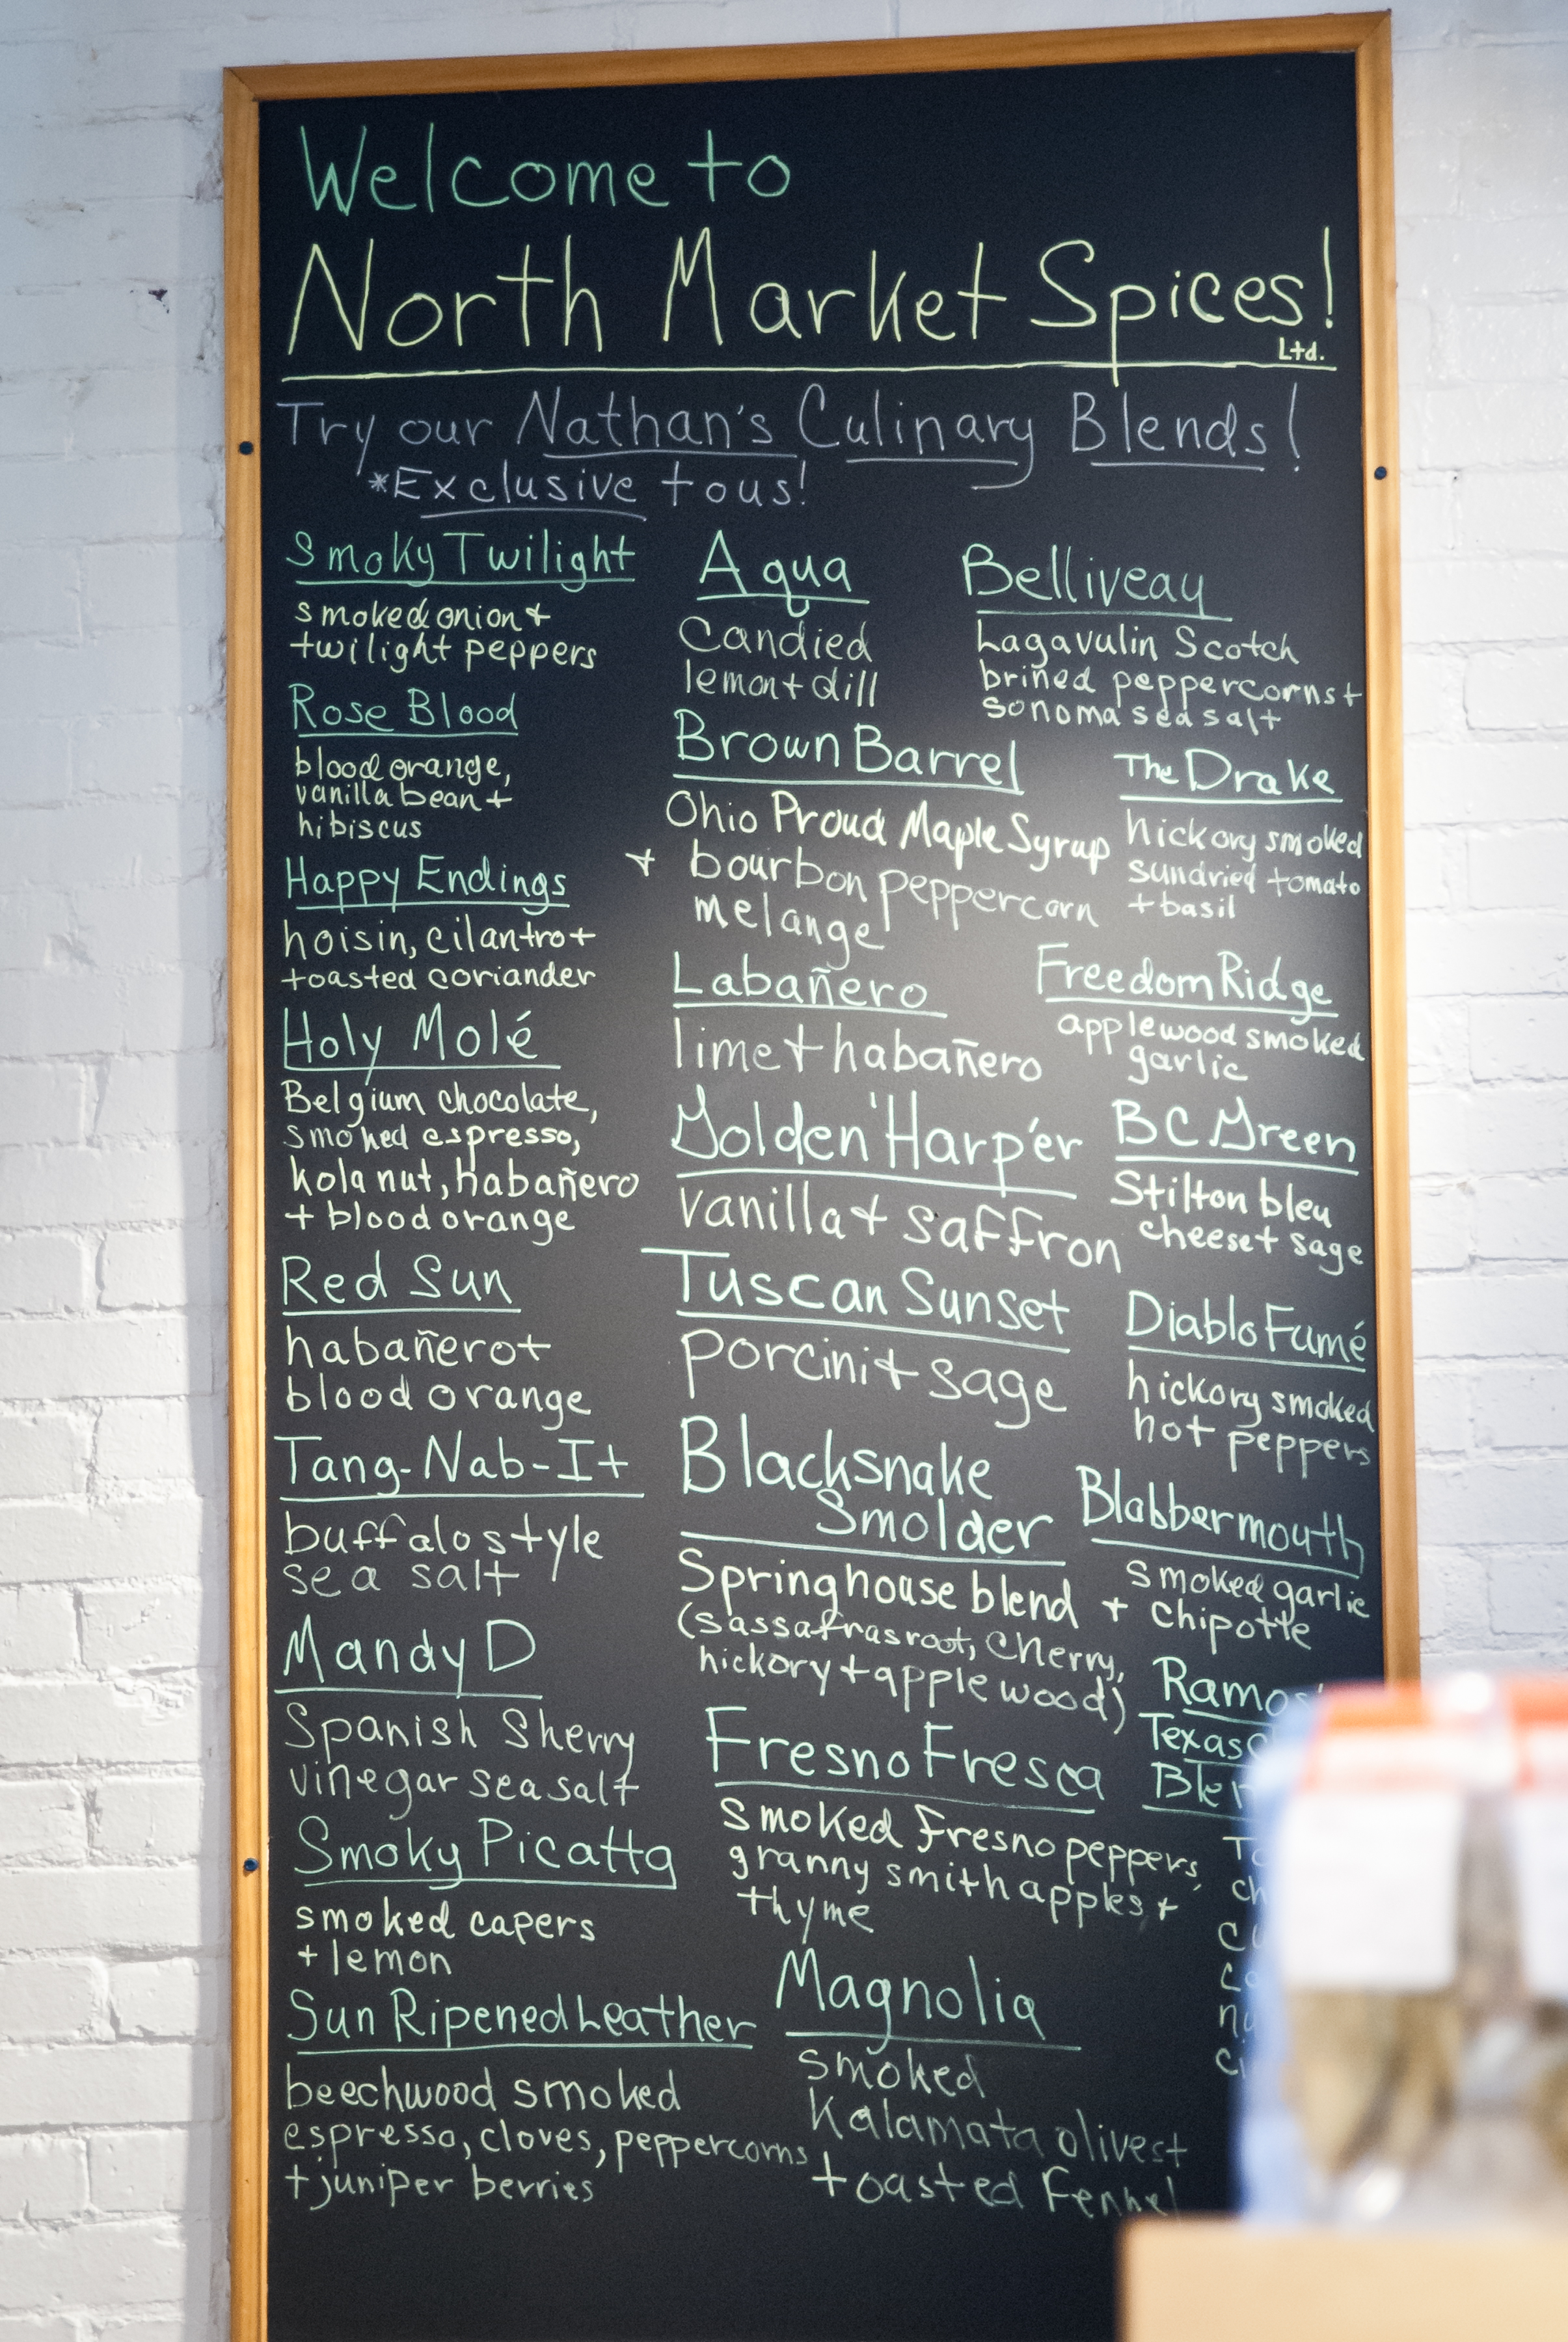 Welcome to
North Market Spices!
Ltd.
Try our Nathan's Culinary Blends!
*Exclusive to us!
Smoky Twilight
smoked onion +
twilight peppers
Rose Blood
blood orange,
vanilla bean +
hibiscus
Happy Endings
hoisin, cilantro +
toasted coriander
Holy Molé
Belgium chocolate,
smoked espresso,
kola nut, habañero
+ blood orange
Red Sun
habañero +
blood orange
Tang-Nab-It
buffalo style
sea salt
Mandy D
Spanish Sherry
vinegar sea salt
Smoky Picatta
smoked capers
+ lemon
Sun Ripened Leather
beechwood smoked
espresso, cloves, peppercorns
+ juniper berries
Aqua
Candied
lemon + dill
Brown Barrel
Ohio Proud Maple Syrup
+ bourbon peppercorn
melange
Labañero
lime + habañero
Golden 'Harp'er
vanilla + saffron
Tuscan Sunset
porcini + sage
Blacksnake
Smolder
Springhouse blend
(sassafras root, cherry,
hickory + applewood)
Fresno Fresca
smoked Fresno peppers,
granny smith apples, +
thyme
Magnolia
smoked
Kalamata olives +
toasted Fennel
Belliveau
Lagavulin Scotch
brined peppercorns +
sonoma sea salt
The Drake
hickory smoked
sundried tomato
+ basil
Freedom Ridge
applewood smoked
garlic
BC Green
Stilton bleu
cheese + sage
Diablo Fumé
hickory smoked
hot peppers
Blabbermouth
smoked garlic
+ chipotle
Texas